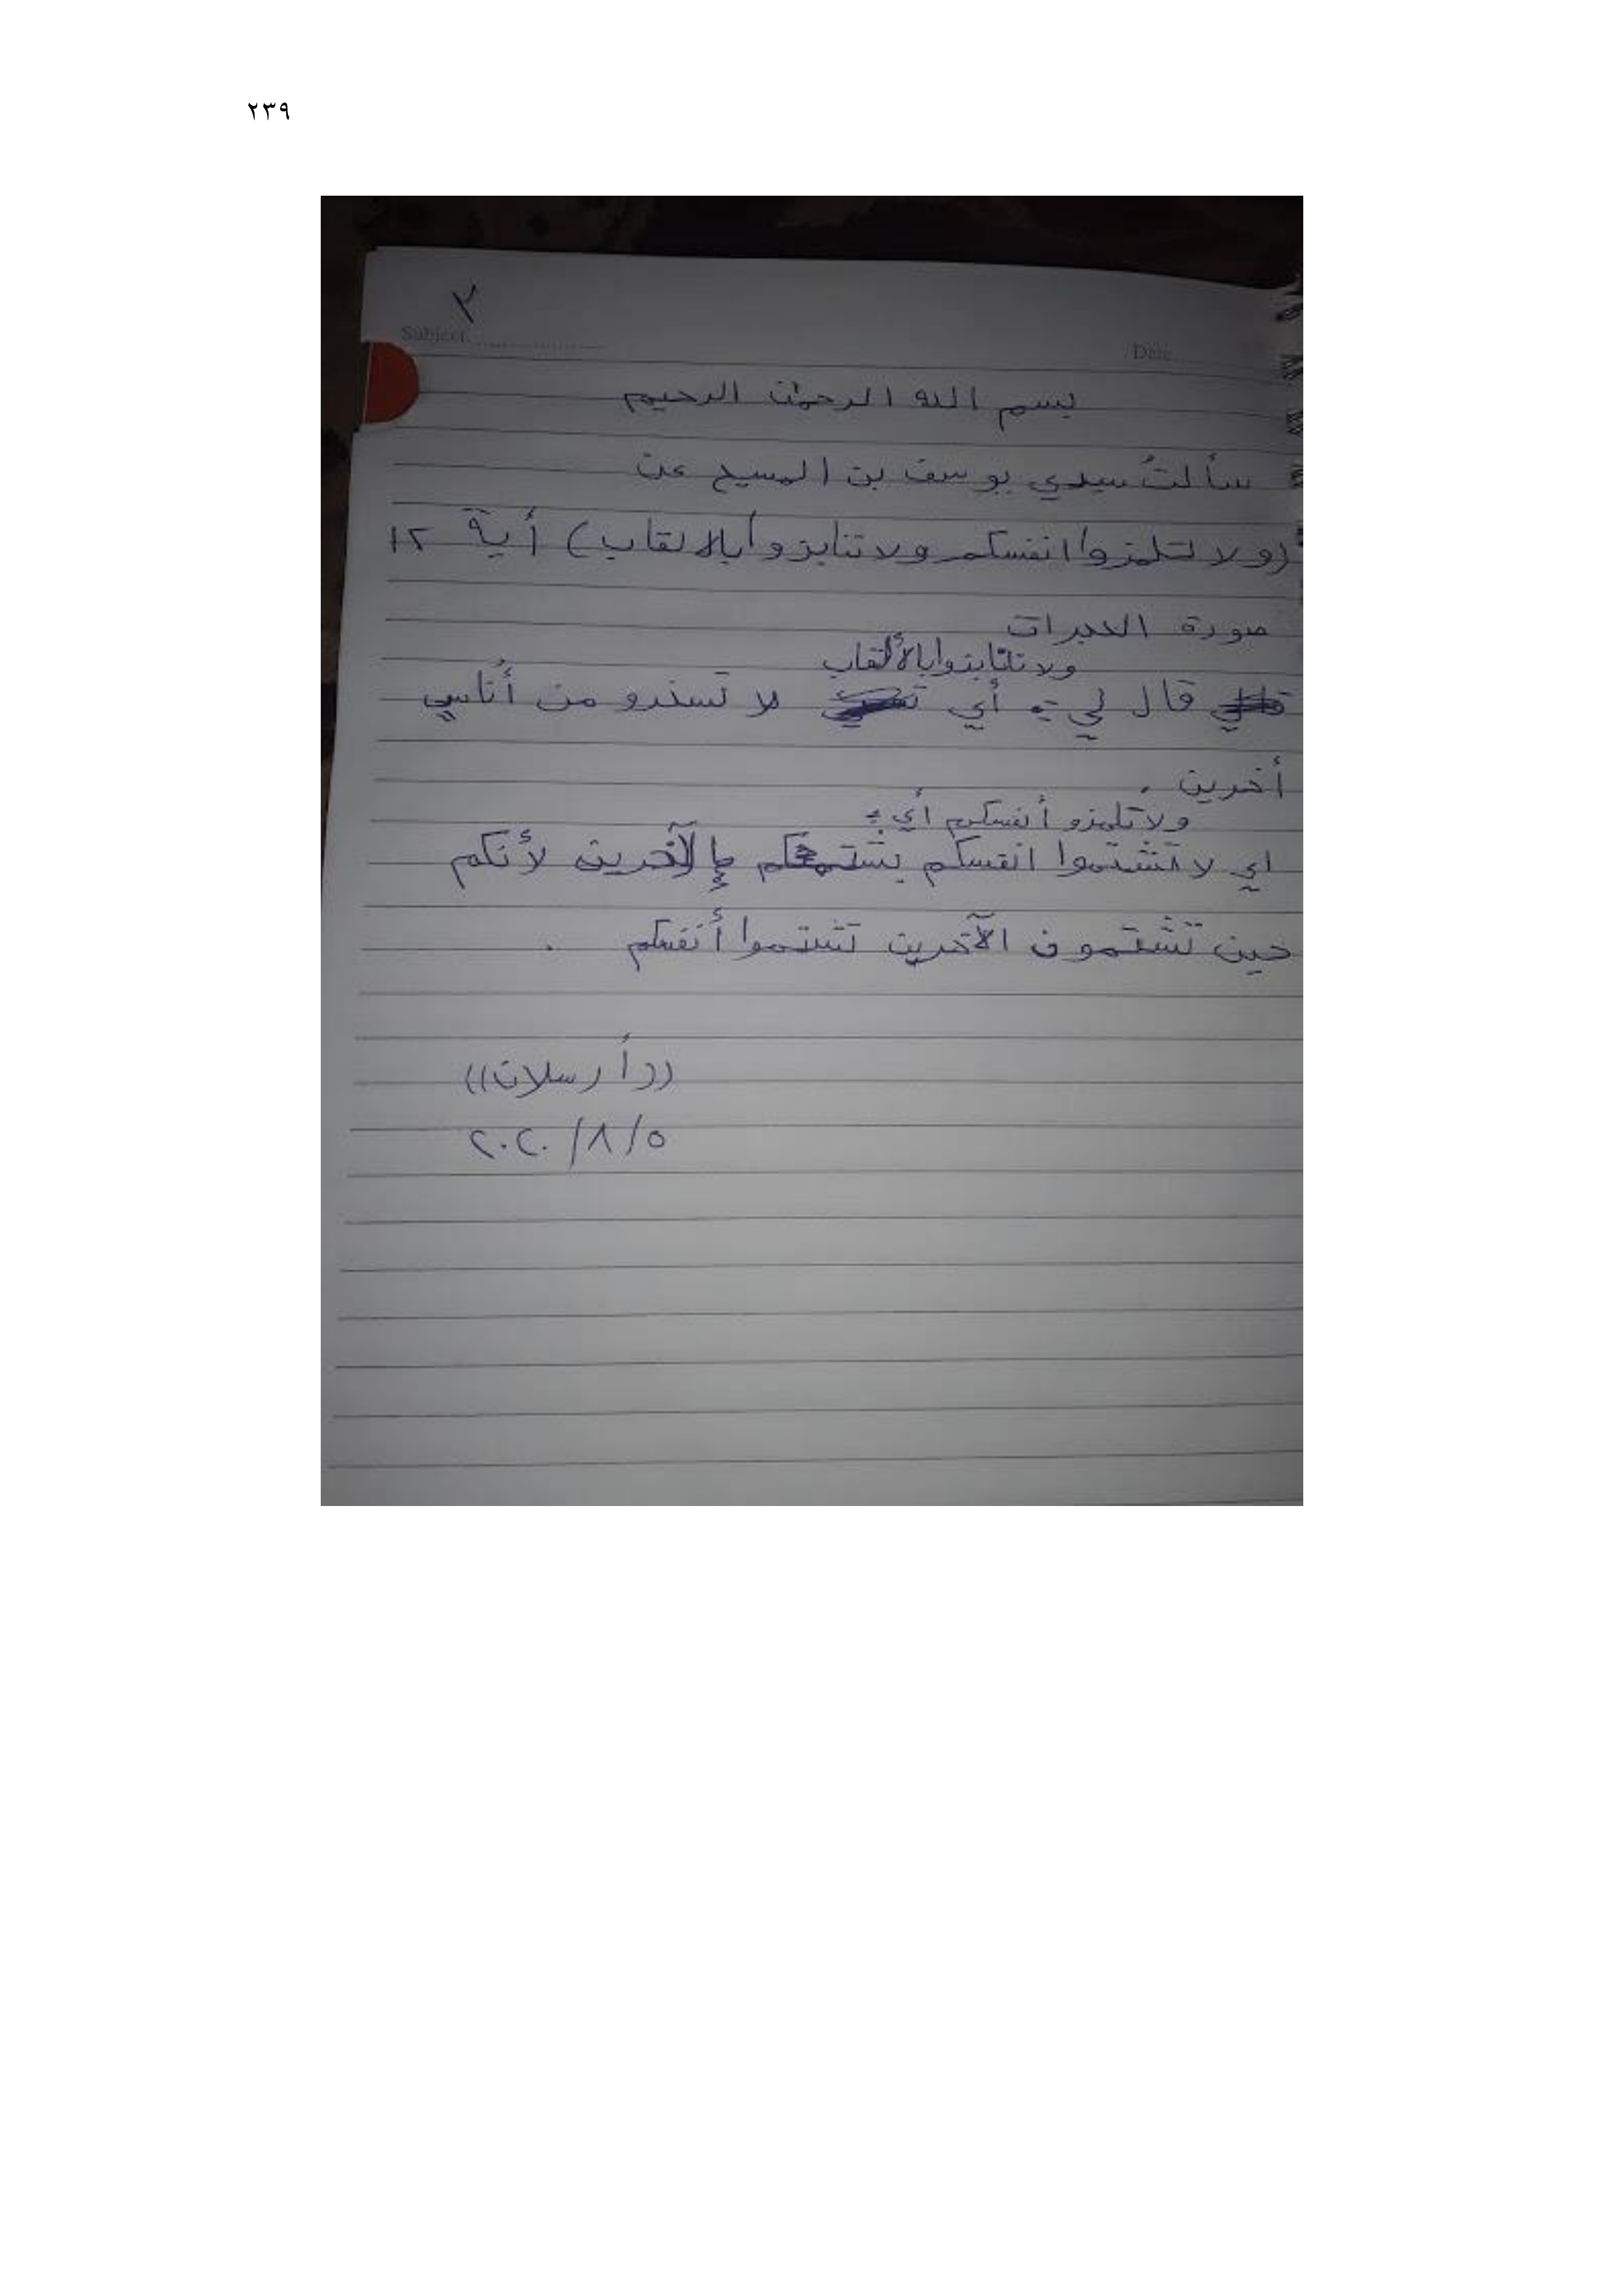 ٢٣٩
٣
Subject
Date
بسم الله الرحمٰن الرحيم
سألتُ سيدي يوسف بن المسيح عن
(ولا تلمزوا انفسكم ولا تنابزوا بالالقاب) أية ١٢
صورة الحجرات
ولا تنابزوا بالألقاب
قال لي : أي لا تسخرو من أُناسٍ
أخرين .
ولا تلمزو أنفسكم أي :
اي لا تشتموا انفسكم بشتمكم لآخرين لأنكم
حين تشتمون الآخرين تشتموا أنفسكم .
((أرسلان))
٥/٨/٢٠٢٠